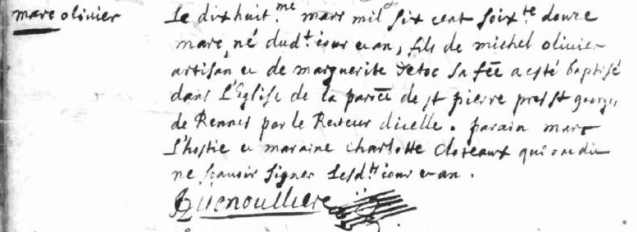 marc olivier
Le dixhuit.me mars mil six cent soix.te douze
marc, né dud.t iour et an, fils de michel olivier
artisan et de marguerite Tetoc sa fẽe a esté baptisé
dans L'Eglise de la parẽe de st pierre pres st georges
de Rennes par le Recteur dicelle. parain marc
L'hostie et maraine charlotte cloteaux qui ont dit
ne scauoir signer Lesd.ts iour et an.
Guenoulliere